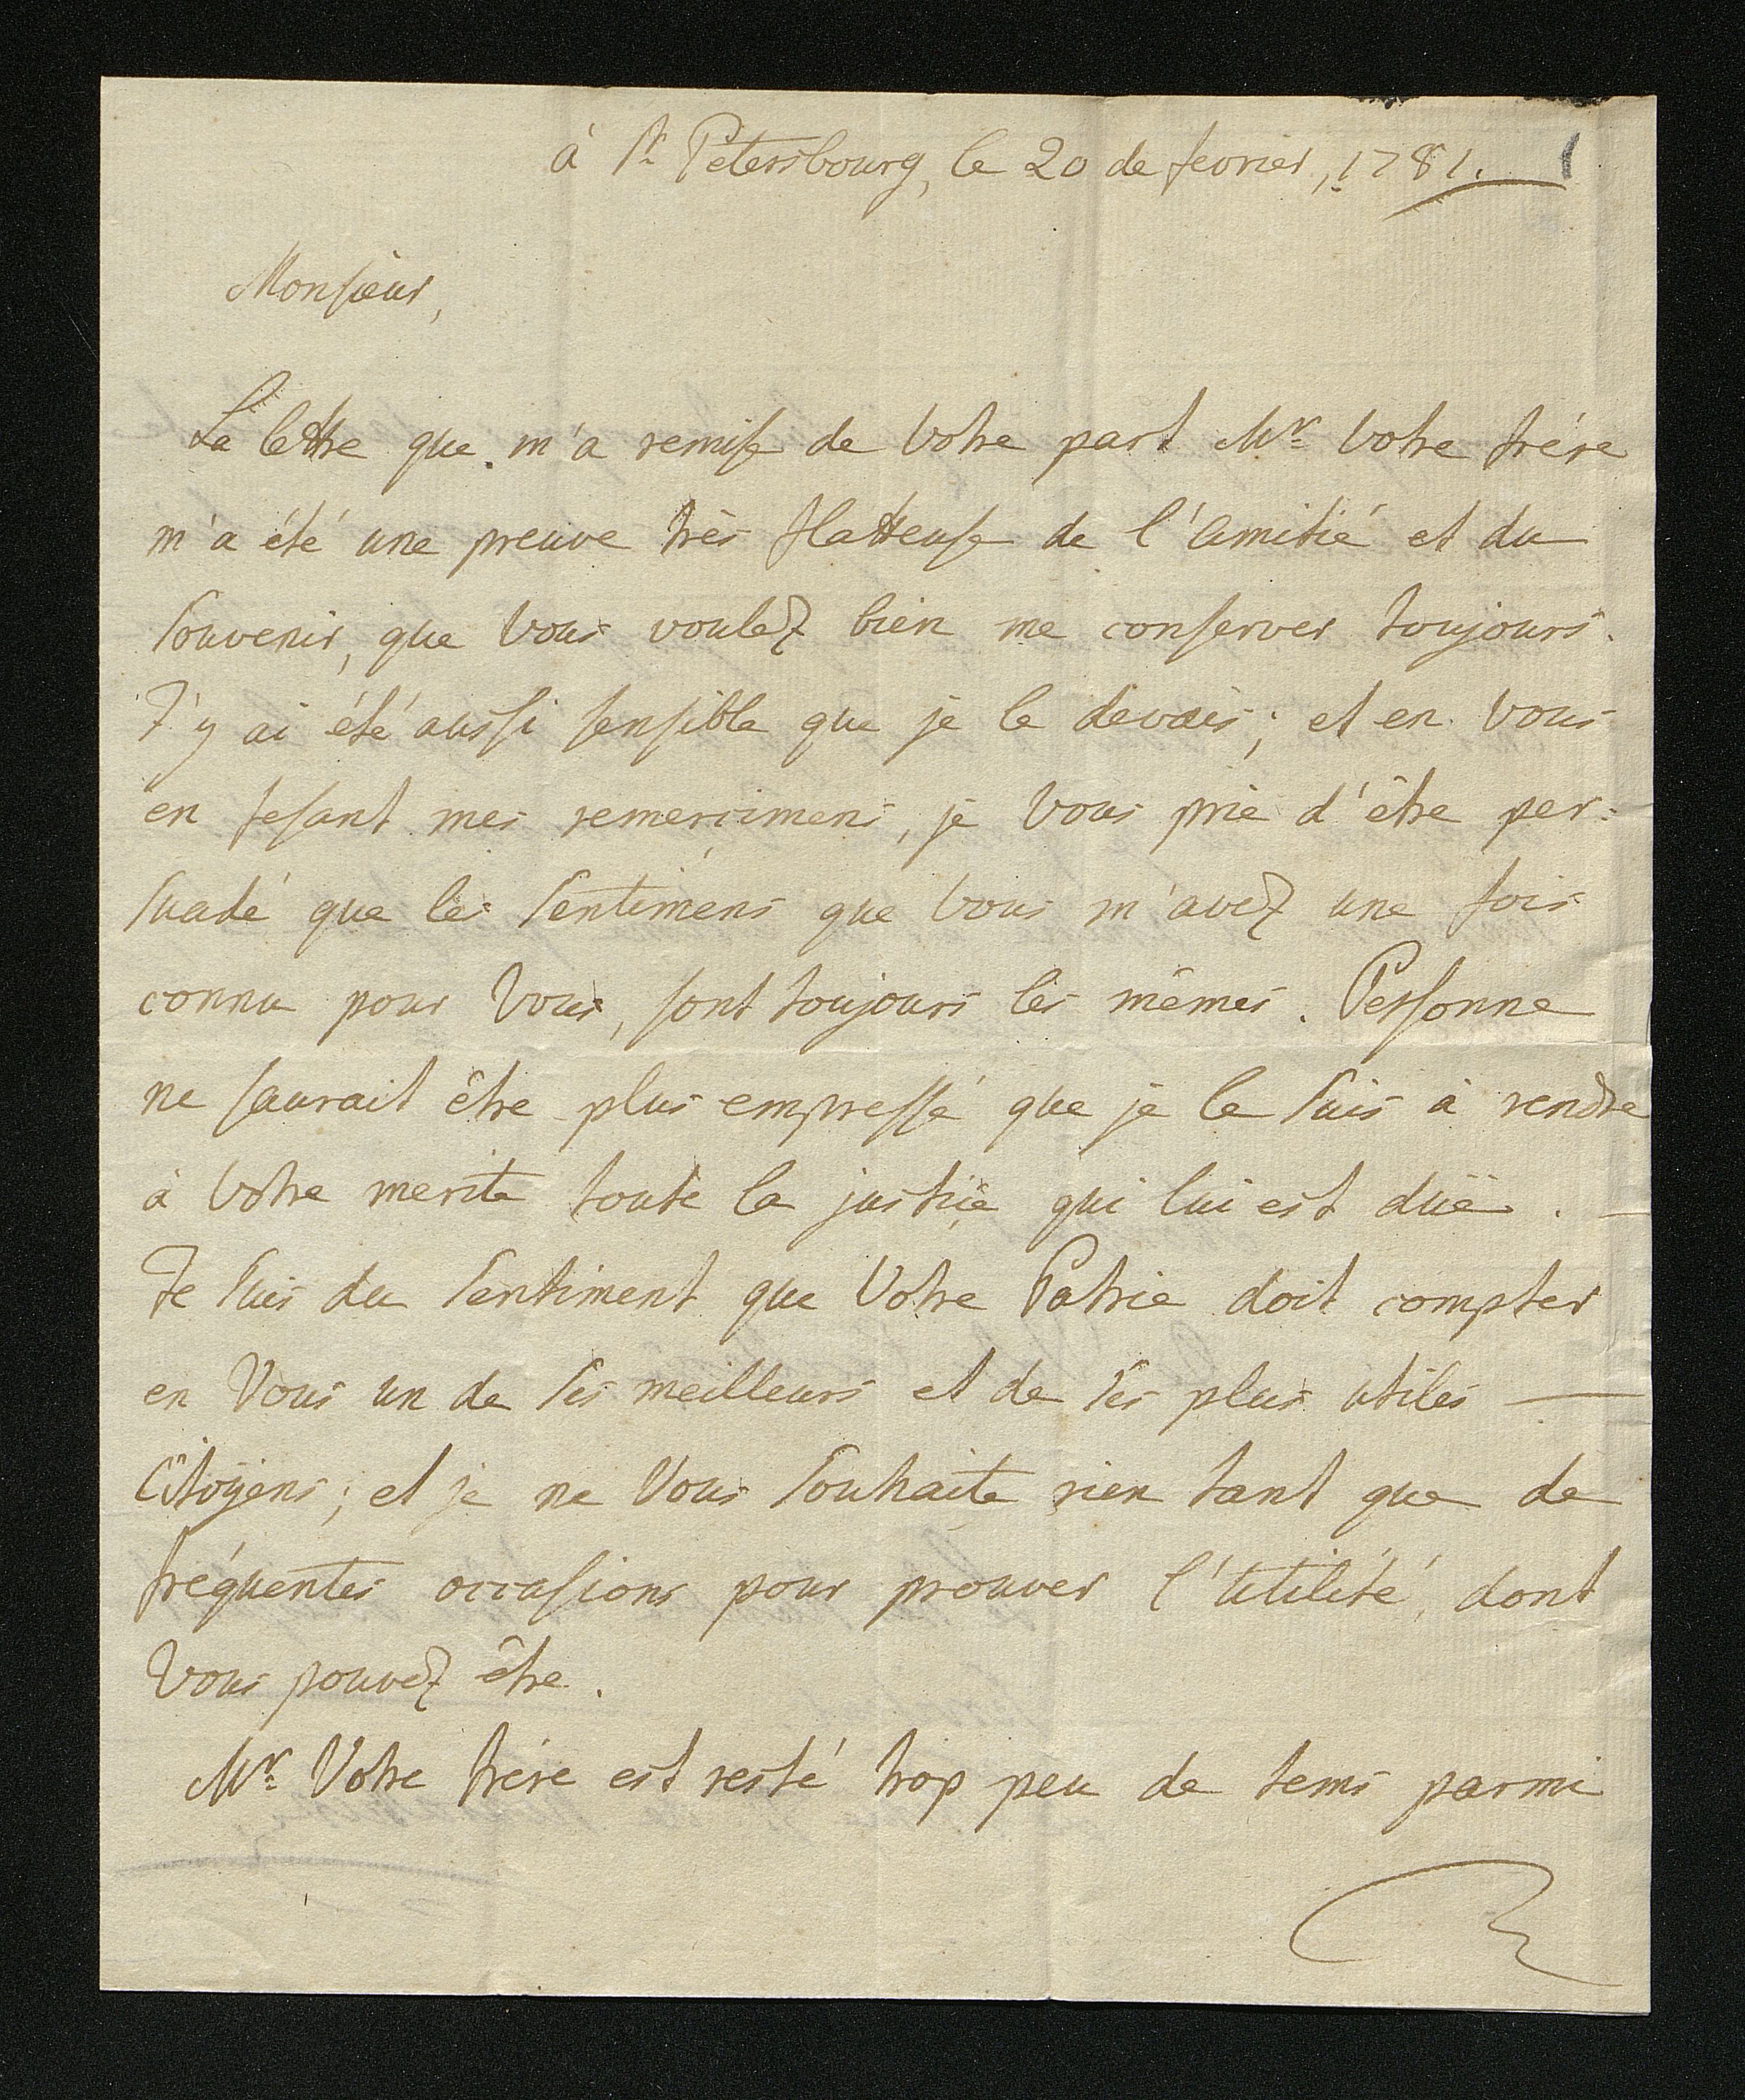 à St Petersbourg, le 20 de fevrier, 1781.
1
Monsieur,
La lettre que m'a remise de Votre part Mr. Votre frére
m'a été une preuve très flatteuse de l'Amitié et du
Souvenir, que Vous voulez bien me conserver toujours.
J'y ai été aussi sensible que je le devais; et en Vous
en fesant mes remercimens, je Vous prie d'être per=
suadé que les Sentimens que Vous m'avez une fois
connu pour Vous, sont toujours les mêmes. Personne
ne saurait être plus empressé que je le suis à rendre
à Votre merite toute la justice qui lui est düe.
Je suis du Sentiment que Votre Patrie doit compter
en Vous un de Ses meilleurs et de Ses plus utiles
Citoÿens; et je ne Vous Souhaite rien tant que de
fréquentes occasions pour prouver l'Utilité, dont
Vous pouvez être.
Mr. Votre frére est resté trop peu de tems parmi